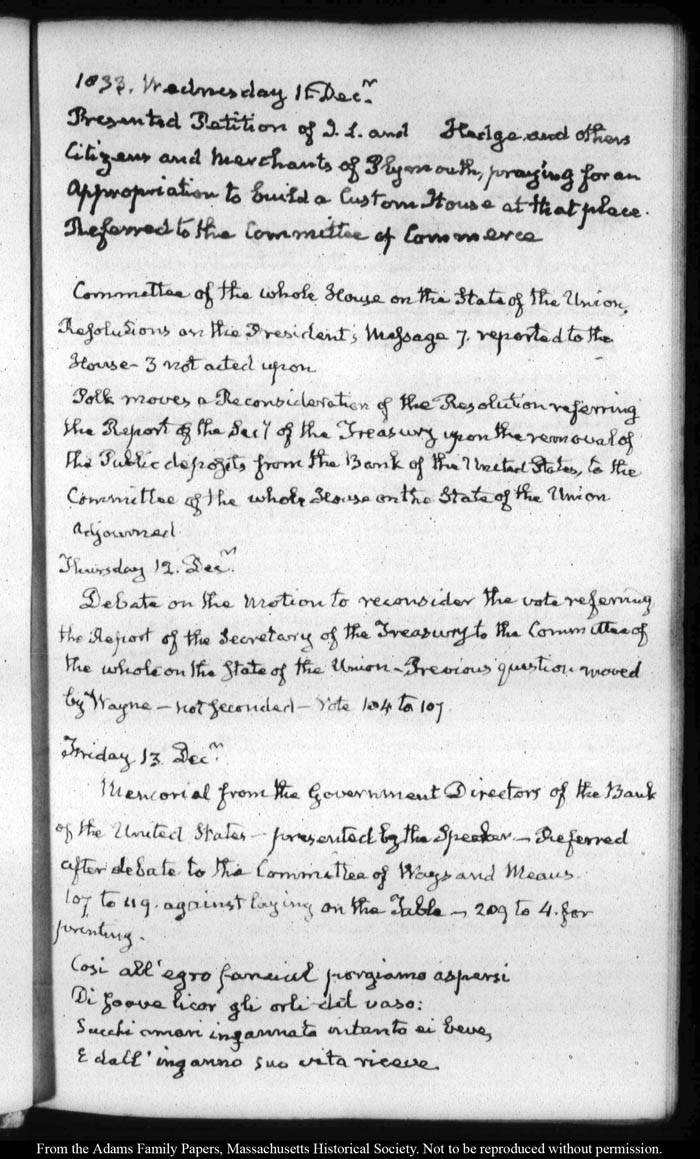 1833. Wednesday 11 Decr.
Presented Petition of I. L. and Hedge, and others
Citizens and Merchants of Plymouth, praying for an
Appropriation to build a Custom House at that place.
Referred to the Committee of Commerce
Committee of the whole House on the State of the Union,
Resolutions on the President's Message 7. reported to the
House – 3 not acted upon
Polk moves a Reconsideration of the Resolution referring
the Report of the Secy of the Treasury upon the removal of
the Public deposits from the Bank of the United States, to the
Committee of the whole House on the State of the Union
Adjourned.
Thursday 12. Decr.
Debate on the Motion to reconsider the vote referring
the Report of the Secretary of the Treasury to the Committee of
the whole on the State of the Union – Previous question moved
by Wayne – not seconded – Vote 104 to 107.
Friday 13 Decr.
Memorial from the Government Directors of the Bank
of the United States – presented by the Speaker – Referred
after debate to the Committee of Ways and Means.
107 to 119. against laying on the Table – 209 to 4. for
printing.
Cosi all' egro fanciul porgiamo aspersi
Di soave licor gli orli del vaso:
Succhi amari ingannato intanto ei beve,
E dall' inganno suo vita riceve.
From the Adams Family Papers, Massachusetts Historical Society. Not to be reproduced without permission.